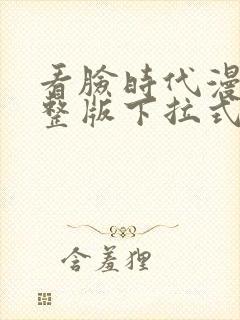 看脸時代漫
整版下拉式
含羞狸